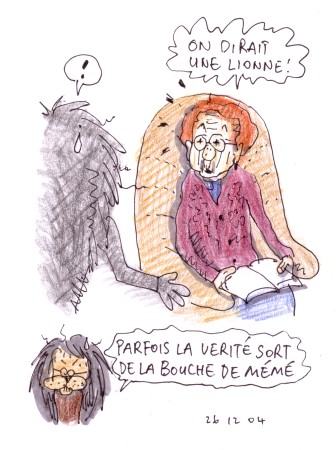 !
ON DIRAIT
UNE LIONNE!
PARFOIS LA VERITÉ SORT
DE LA BOUCHE DE MÉMÉ
26 12 04